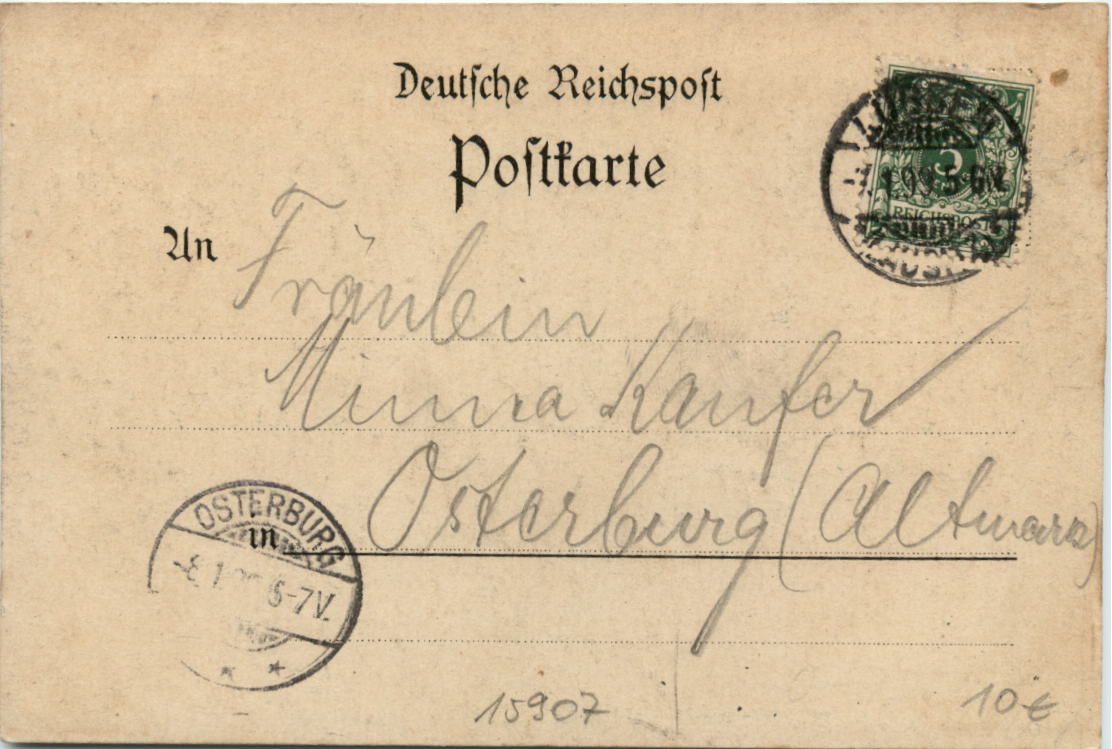 Deutsche Reichspost
Postkarte
An
Fräulein
Minna Kaufer
Osterburg (Altmark)
in
3
REICHSPOST
1 99 5-6N
OSTERBURG
-8.1 6-7V.
* *
15907
10€